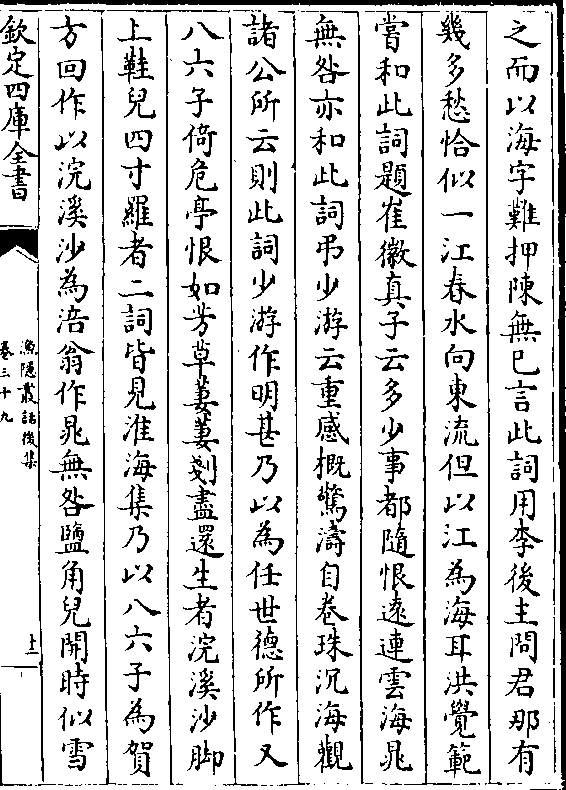 之而以海字難押陳無已言此詞用李後主問君那有
幾多愁恰似一江春水向東流但以江為海耳洪覺範
嘗和此詞題崔徽真子云多少事都隨恨遠連雲海晁
無咎亦和此詞弔少游云重感概驚濤自卷珠沉海觀
諸公所云則此詞少游作明甚乃以為任世德所作又
八六子倚危亭恨如芳草萋萋剗盡還生者浣溪沙脚
上鞋兒四寸羅者二詞皆見淮海集乃以八六子為賀
方回作以浣溪沙為涪翁作晁無咎鹽角兒開時似雪
欽定四庫全書
漁隱叢話後集
卷三十九
十二